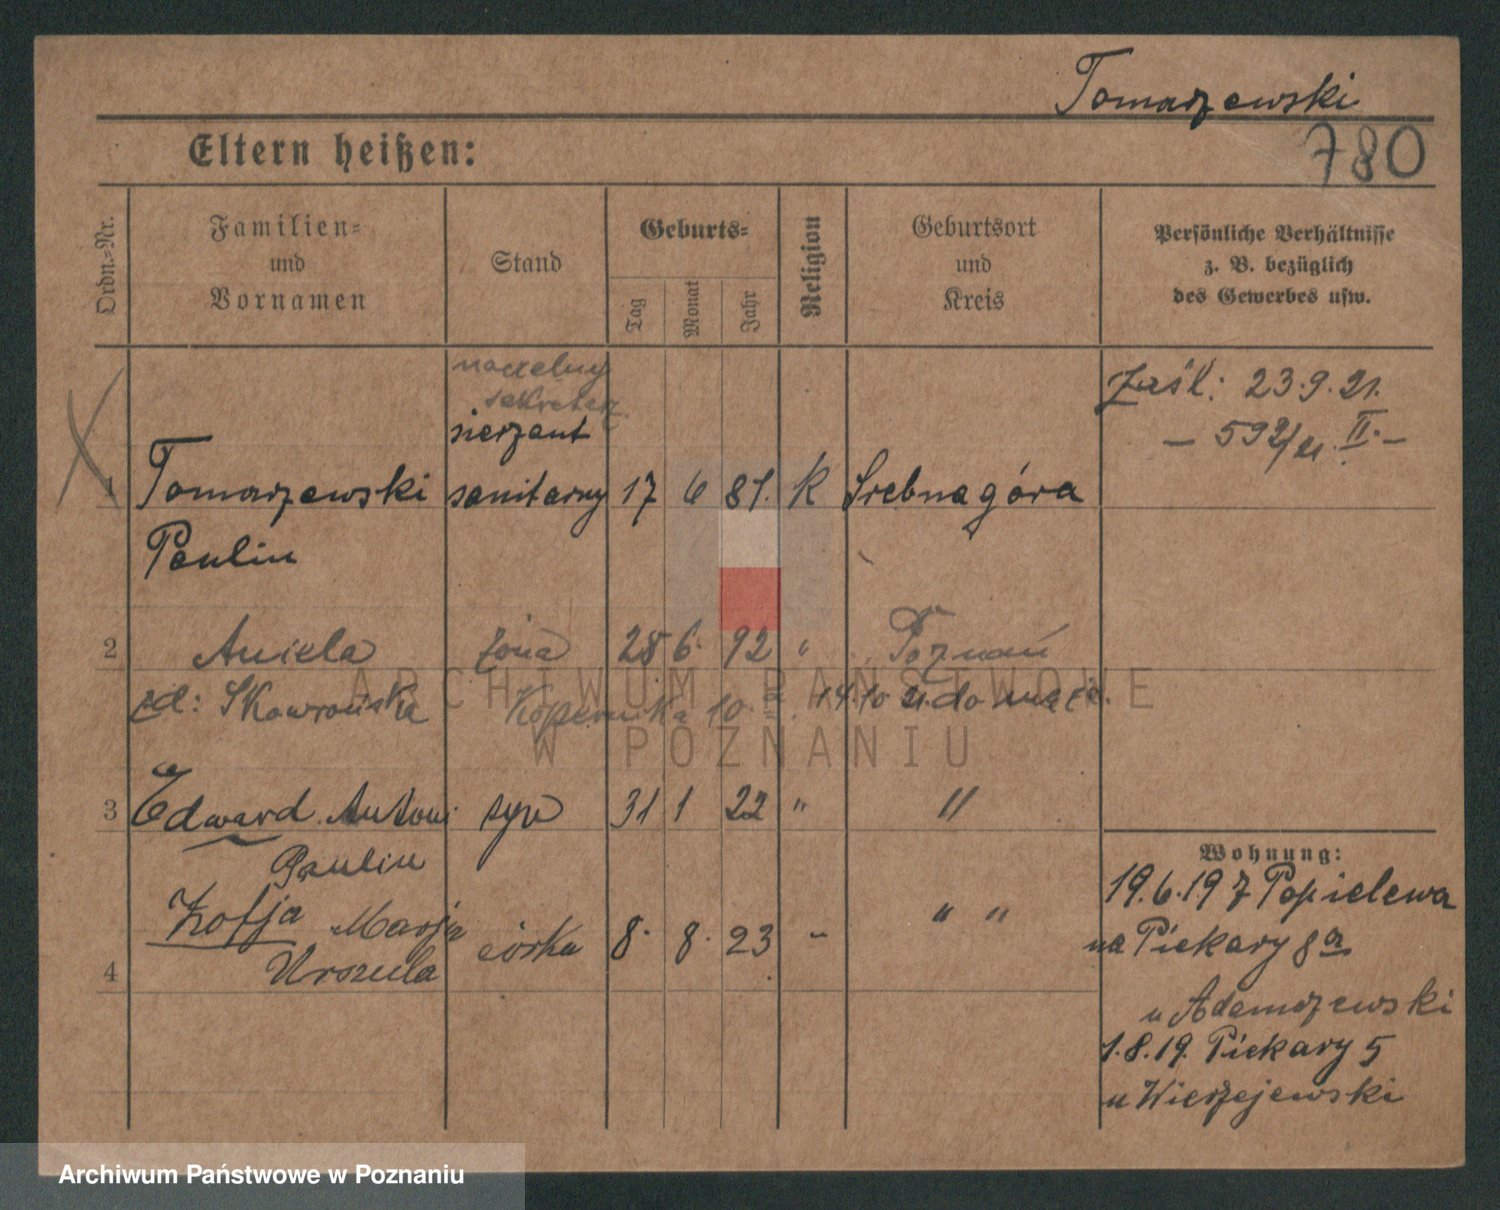 Tomarzewski
780
Eltern heißen:
Ordn.-Nr.
Familien=
und
Vornamen
Stand
Geburts=
Tag
Monat
Jahr
Religion
Geburtsort
und
Kreis
Persönliche Verhältnisse
z. B. bezüglich
des Gewerbes usw.
naczelny
sekretarz
sierżant
1 Tomarzewski sanitarny 17 6 81. K Srebnagóra
Paulin
Zaśk: 23.9.21.
II.
2 Aniela żona 28 6. 92 " Poznań
zd: Skowrońska Kopernika 10 14.10 21. do męża.
3 Edward Antoni syn 31 1 22 " "
Paulin
4 Zofja Marja córka 8. 8. 23 - " "
Urszula
Wohnung:
19.6.19 z Popielewa
na Piekary 8a
u Adamczewski
1.8.19. Piekary 5
u Wierzejewski
ARCHIWUM PAŃSTWOWE
W POZNANIU
Archiwum Państwowe w Poznaniu